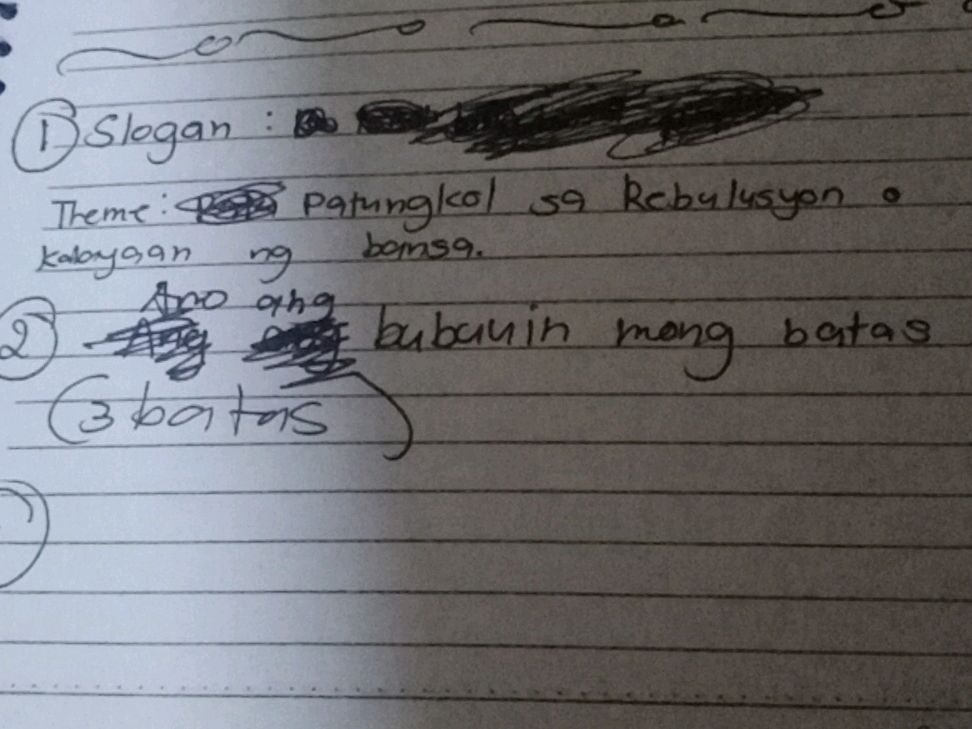 1 Slogan :
Theme: patungkol sa Rebulusyon o
kalayaan ng bansa.
Ano ang
2 bubauin mong batas
(3 batas)